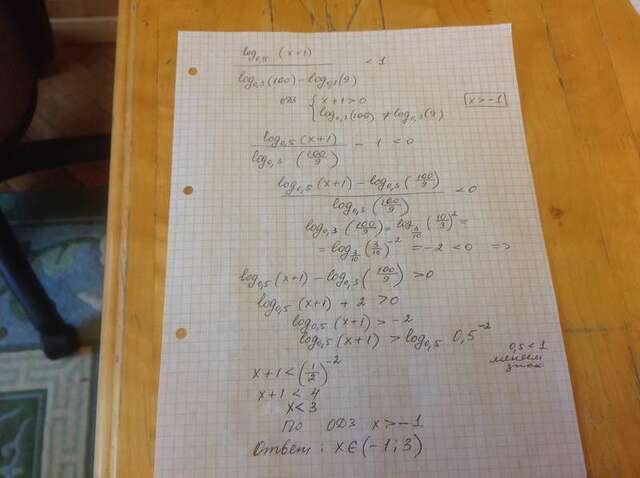 log₀,₅ (x+1) / log₀,₃(100) − log₀,₃(9) < 1
ОДЗ { x+1>0 x>−1
log₀,₃(100) ≠ log₀,₃(9)
log₀,₅(x+1) / log₀,₃ (100/9) − 1 < 0
log₀,₅(x+1) − log₀,₃(100/9) / log₀,₃(100/9) < 0
log₀,₃(100/9) = log_{3/10}(10/3)² =
= log_{3/10}(3/10)⁻² = −2 < 0 =>
log₀,₅(x+1) − log₀,₃(100/9) > 0
log₀,₅(x+1) + 2 > 0
log₀,₅(x+1) > −2
log₀,₅(x+1) > log₀,₅ 0,5⁻²
0,5 < 1
меняем
знак
x+1 < (1/2)⁻²
x+1 < 4
x < 3
По ОДЗ x > −1
Ответ: x ∈ (−1; 3)